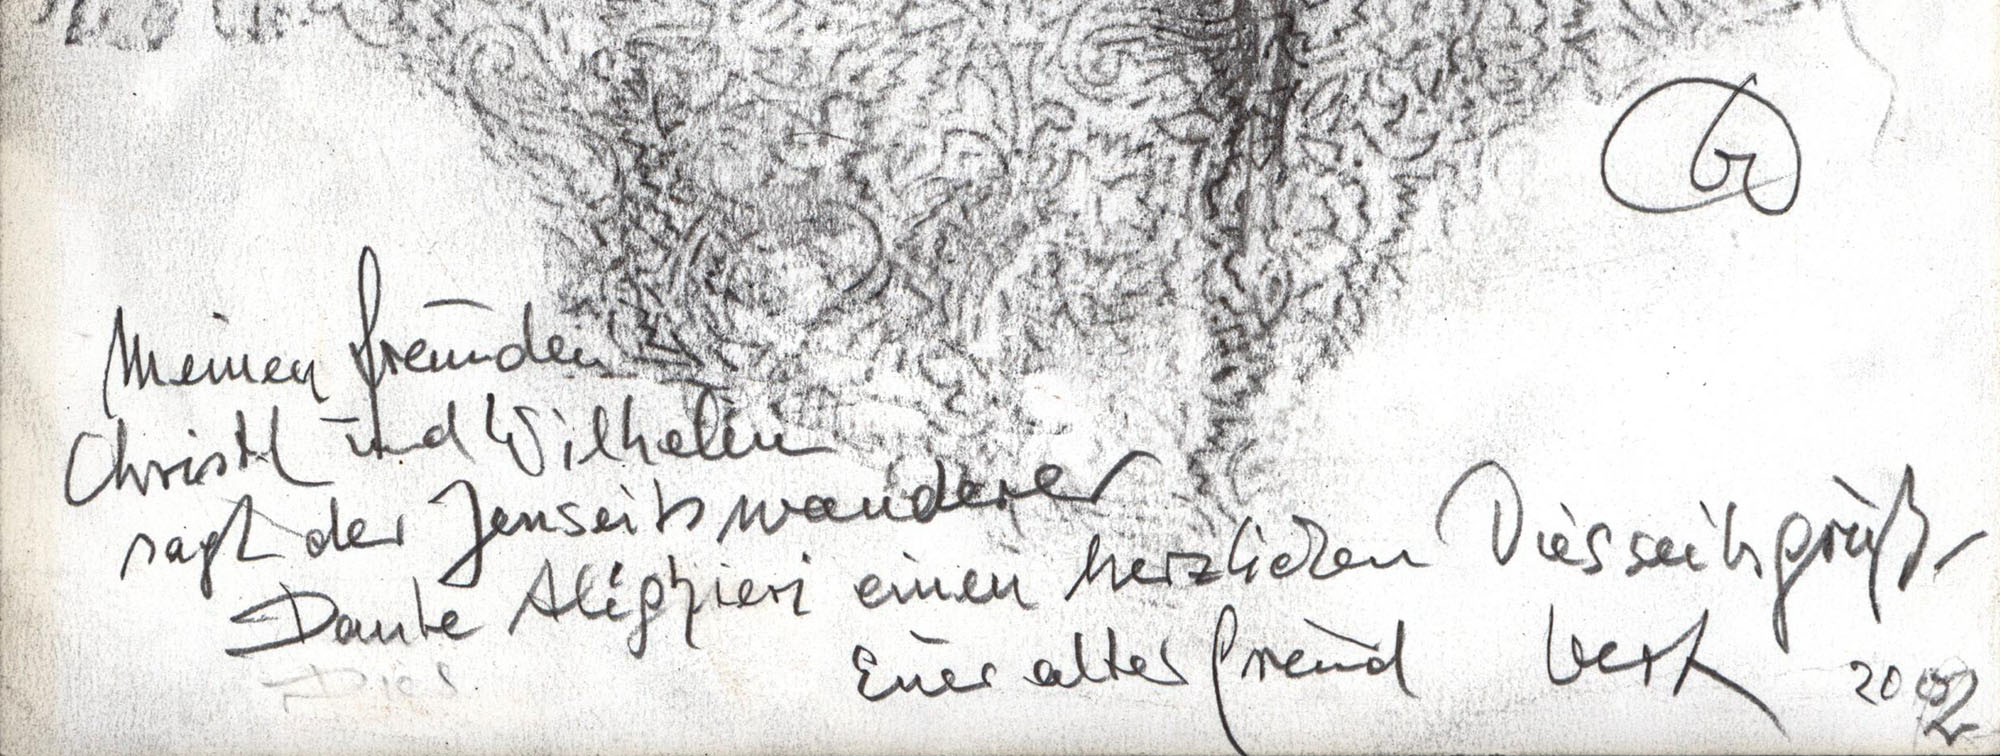 Meinen Freunden
Christl und Wilhelm
sagt der Jenseitswanderer
Dante Alighieri einen herzlichen Diesseitsgruß
Euer alter Freund
2002